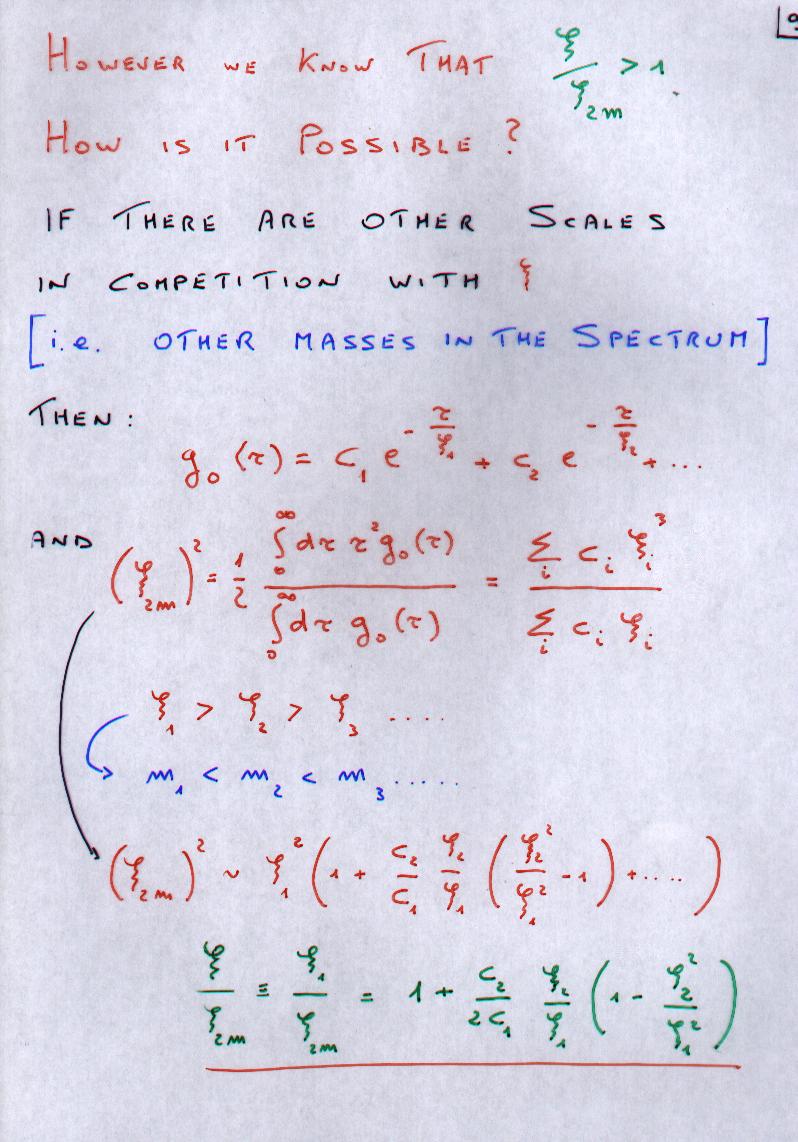 9
HOWEVER WE KNOW THAT ξ/ξ₂ₘ > 1.
HOW IS IT POSSIBLE ?
IF THERE ARE OTHER SCALES
IN COMPETITION WITH ξ
[i.e. OTHER MASSES IN THE SPECTRUM]
THEN :
g₀(τ) = c₁ e^(-τ/ξ₁) + c₂ e^(-τ/ξ₂) + ...
AND (ξ₂ₘ)² = 1/2 ∫₀^∞ dτ τ² g₀(τ) / ∫₀^∞ dτ g₀(τ) = Σᵢ cᵢ ξᵢ³ / Σᵢ cᵢ ξᵢ
ξ₁ > ξ₂ > ξ₃ ....
m₁ < m₂ < m₃ .....
(ξ₂ₘ)² ~ ξ₁² (1 + c₂/c₁ ξ₂/ξ₁ (ξ₂²/ξ₁² - 1) + ....)
ξ/ξ₂ₘ ≡ ξ₁/ξ₂ₘ = 1 + c₂/2c₁ ξ₂/ξ₁ (1 - ξ₂²/ξ₁²)